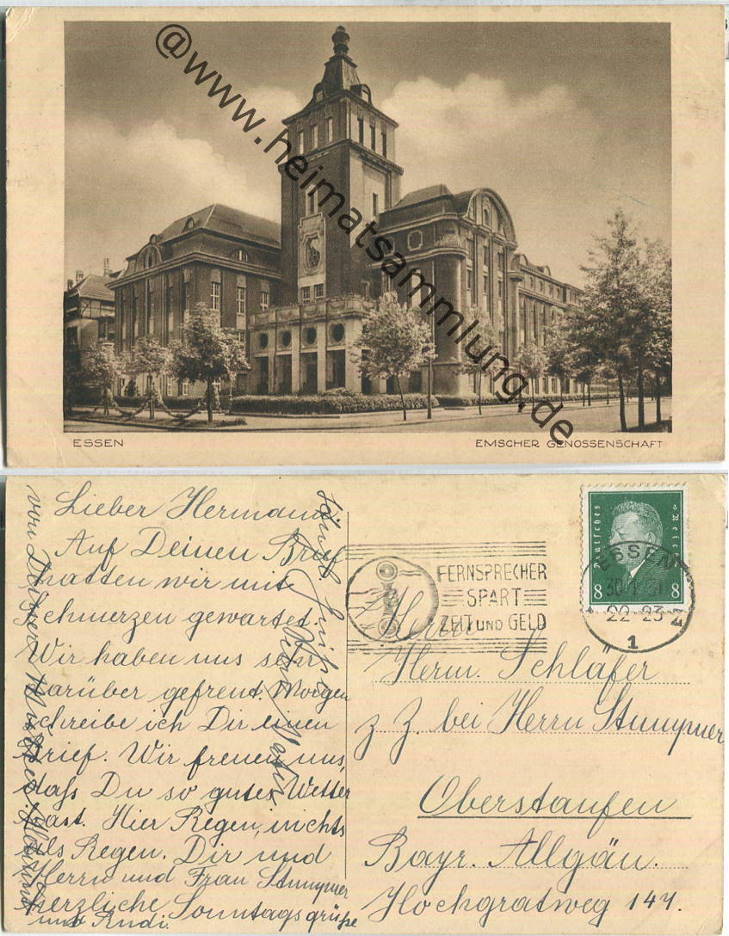 @www.heimatsammlung.de
ESSEN
EMSCHER GENOSSENSCHAFT
Lieber Hermann
Auf Deinen Brief
hatten wir mit
Schmerzen gewartet.
Wir haben uns sehr
darüber gefreut. Morgen
schreibe ich Dir einen
Brief. Wir freuen uns,
daß Du so gutes Wetter
hast. Hier Regen, nichts
als Regen. Dir und
Herrn und Frau Stumpner
herzliche Sonntagsgrüße
von Deiner Mutter
und Rudi.
FERNSPRECHER
SPART
ZEIT UND GELD
Deutsches Reich
8 8
ESSEN
22-23
1
Herrn
Herm. Schläfer
z. Z. bei Herrn Stumpner
Oberstaufen
Bayr. Allgäu.
Hochgratweg 141.